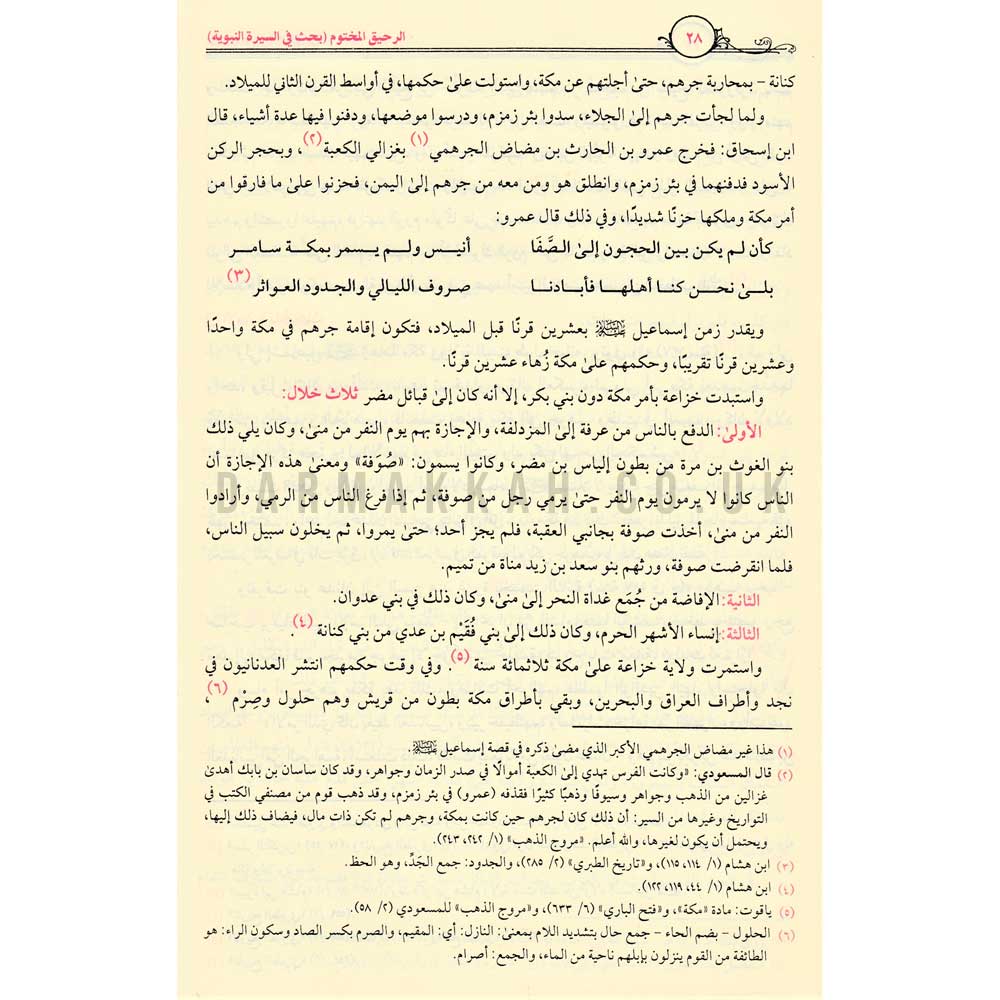 ٢٨
الرحيق المختوم (بحث في السيرة النبوية)
كنانة – بمحاربة جرهم، حتىٰ أجلتهم عن مكة، واستولت علىٰ حكمها، في أواسط القرن الثاني للميلاد.
ولما لجأت جرهم إلىٰ الجلاء، سدوا بئر زمزم، ودرسوا موضعها، ودفنوا فيها عدة أشياء، قال
ابن إسحاق: فخرج عمرو بن الحارث بن مضاض الجرهمي(١) بغزالي الكعبة(٢)، وبحجر الركن
الأسود فدفنهما في بئر زمزم، وانطلق هو ومن معه من جرهم إلىٰ اليمن، فحزنوا علىٰ ما فارقوا من
أمر مكة وملكها حزنًا شديدًا، وفي ذلك قال عمرو:
كأن لم يكن بين الحجون إلىٰ الصَّفَا أنيس ولم يسمر بمكة سامر
بلىٰ نحن كنا أهلها فأبادنا صروف الليالي والجدود العواثر (٣)
ويقدر زمن إسماعيل عليه السلام بعشرين قرنًا قبل الميلاد، فتكون إقامة جرهم في مكة واحدًا
وعشرين قرنًا تقريبًا، وحكمهم علىٰ مكة زُهاء عشرين قرنًا.
واستبدت خزاعة بأمر مكة دون بني بكر، إلا أنه كان إلىٰ قبائل مضر ثلاث خلال:
الأولىٰ: الدفع بالناس من عرفة إلىٰ المزدلفة، والإجازة بهم يوم النفر من منىٰ، وكان يلي ذلك
بنو الغوث بن مرة من بطون إلياس بن مضر، وكانوا يسمون: «صُوَفة» ومعنىٰ هذه الإجازة أن
الناس كانوا لا يرمون يوم النفر حتىٰ يرمي رجل من صوفة، ثم إذا فرغ الناس من الرمي، وأرادوا
DARMAKKAH.CO.UK
النفر من منىٰ، أخذت صوفة بجانبي العقبة، فلم يجز أحد؛ حتىٰ يمروا، ثم يخلون سبيل الناس،
فلما انقرضت صوفة، ورثهم بنو سعد بن زيد مناة من تميم.
الثانية: الإفاضة من جُمَع غداة النحر إلىٰ منىٰ، وكان ذلك في بني عدوان.
الثالثة: إنساء الأشهر الحرم، وكان ذلك إلىٰ بني فُقَيْم بن عدي من بني كنانة (٤).
واستمرت ولاية خزاعة علىٰ مكة ثلاثمائة سنة (٥). وفي وقت حكمهم انتشر العدنانيون في
نجد وأطراف العراق والبحرين، وبقي بأطراق مكة بطون من قريش وهم حلول وصِرْم (٦)،
(١) هذا غير مضاض الجرهمي الأكبر الذي مضىٰ ذكره في قصة إسماعيل عليه السلام.
(٢) قال المسعودي: «وكانت الفرس تهدي إلىٰ الكعبة أموالًا في صدر الزمان وجواهر، وقد كان ساسان بن بابك أهدىٰ
غزالين من الذهب وجواهر وسيوفًا وذهبًا كثيرًا فقذفه (عمرو) في بئر زمزم، وقد ذهب قوم من مصنفي الكتب في
التواريخ وغيرها من السير: أن ذلك كان لجرهم حين كانت بمكة، وجرهم لم تكن ذات مال، فيضاف ذلك إليها،
ويحتمل أن يكون لغيرها، والله أعلم. «مروج الذهب» (١/ ٢٤٢، ٢٤٣).
(٣) ابن هشام (١/ ١١٤، ١١٥)، و«تاريخ الطبري» (٢/ ٢٨٥)، والجدود: جمع الجَدِّ، وهو الحظ.
(٤) ابن هشام (١/ ٤٤، ١١٩، ١٢٢).
(٥) ياقوت: مادة «مكة»، و«فتح الباري» (٦/ ٦٣٣)، و«مروج الذهب» للمسعودي (٢/ ٥٨).
(٦) الحلول – بضم الحاء – جمع حال بتشديد اللام بمعنىٰ: النازل: أي: المقيم، والصرم بكسر الصاد وسكون الراء: هو
الطائفة من القوم ينزلون بإبلهم ناحية من الماء، والجمع: أصرام.